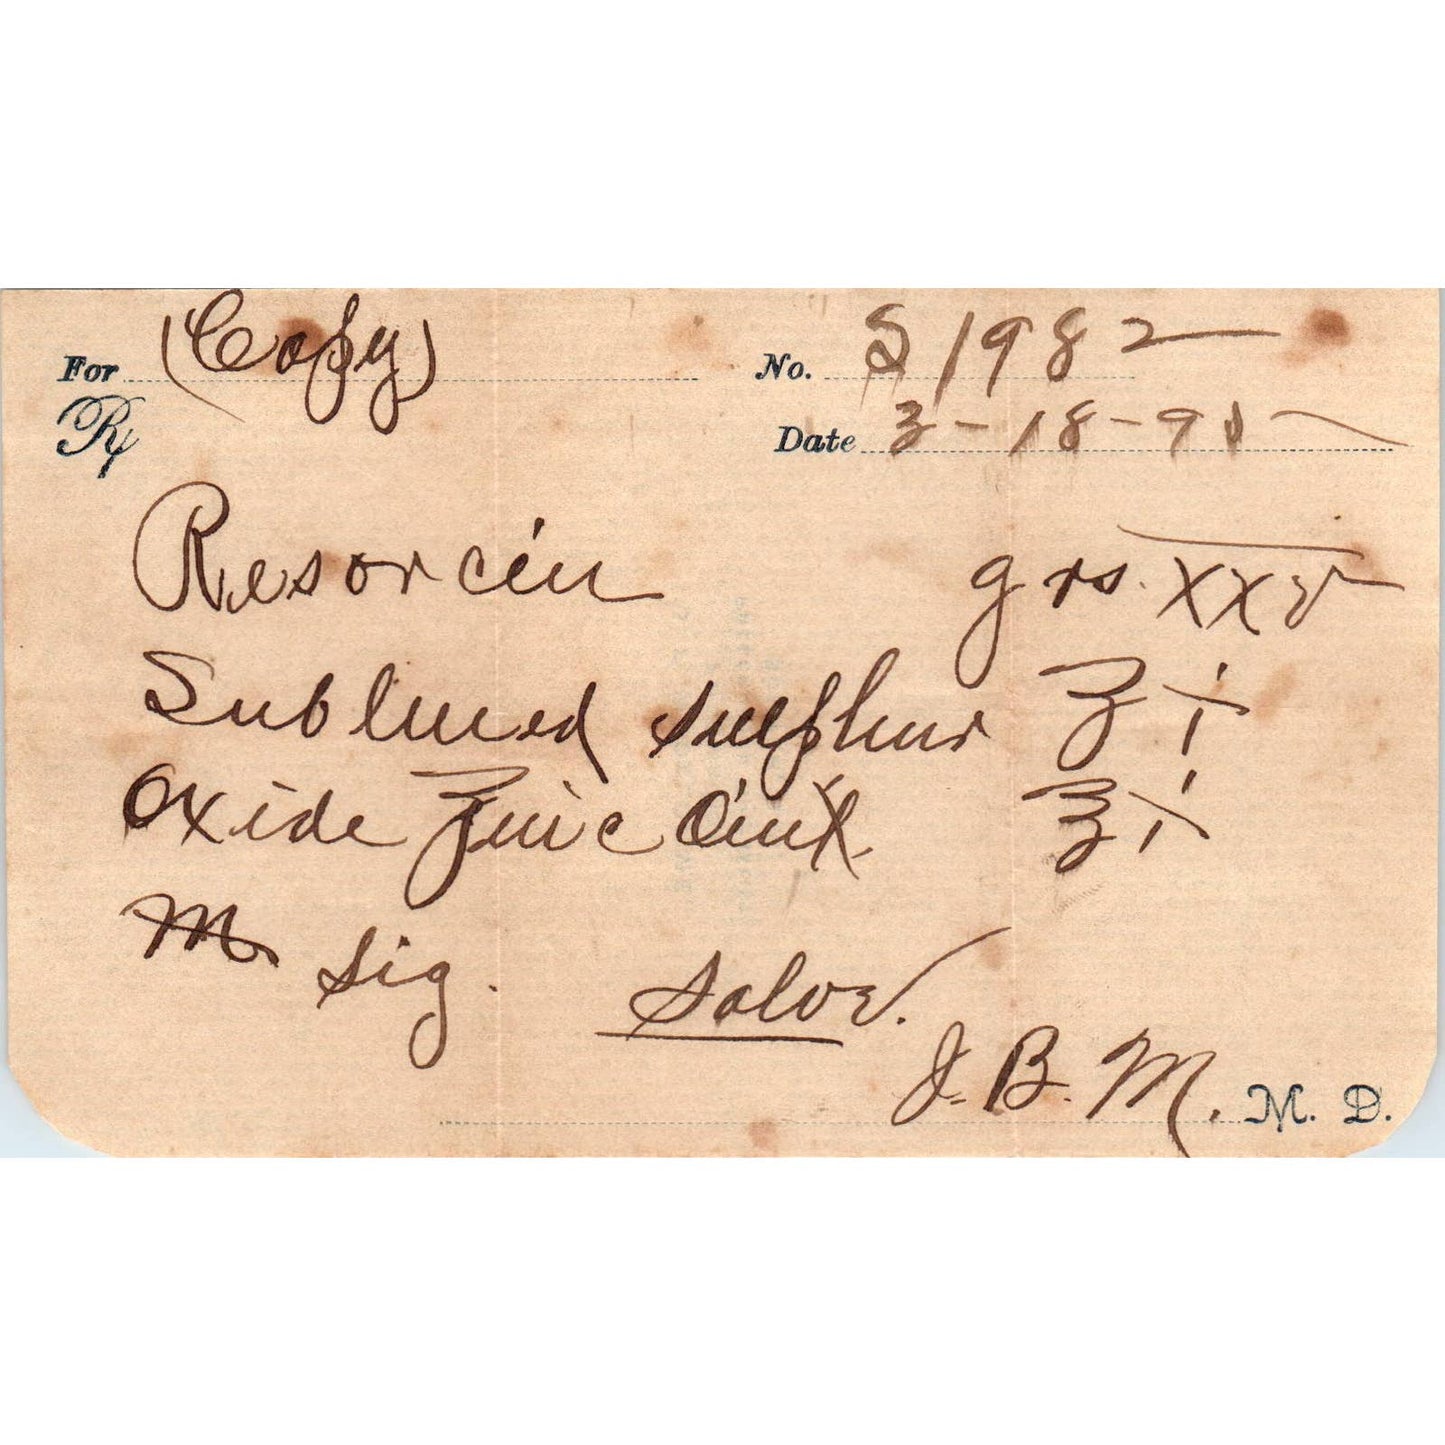 For (Copy) No. S 1982
℞ Date 3-18-91
Resorcin grs. xxv
Sublimed sulphur ʒ i
Oxide Zinc Oint. ℥ i
M
Sig. Salve.
J. B. M. M. D.